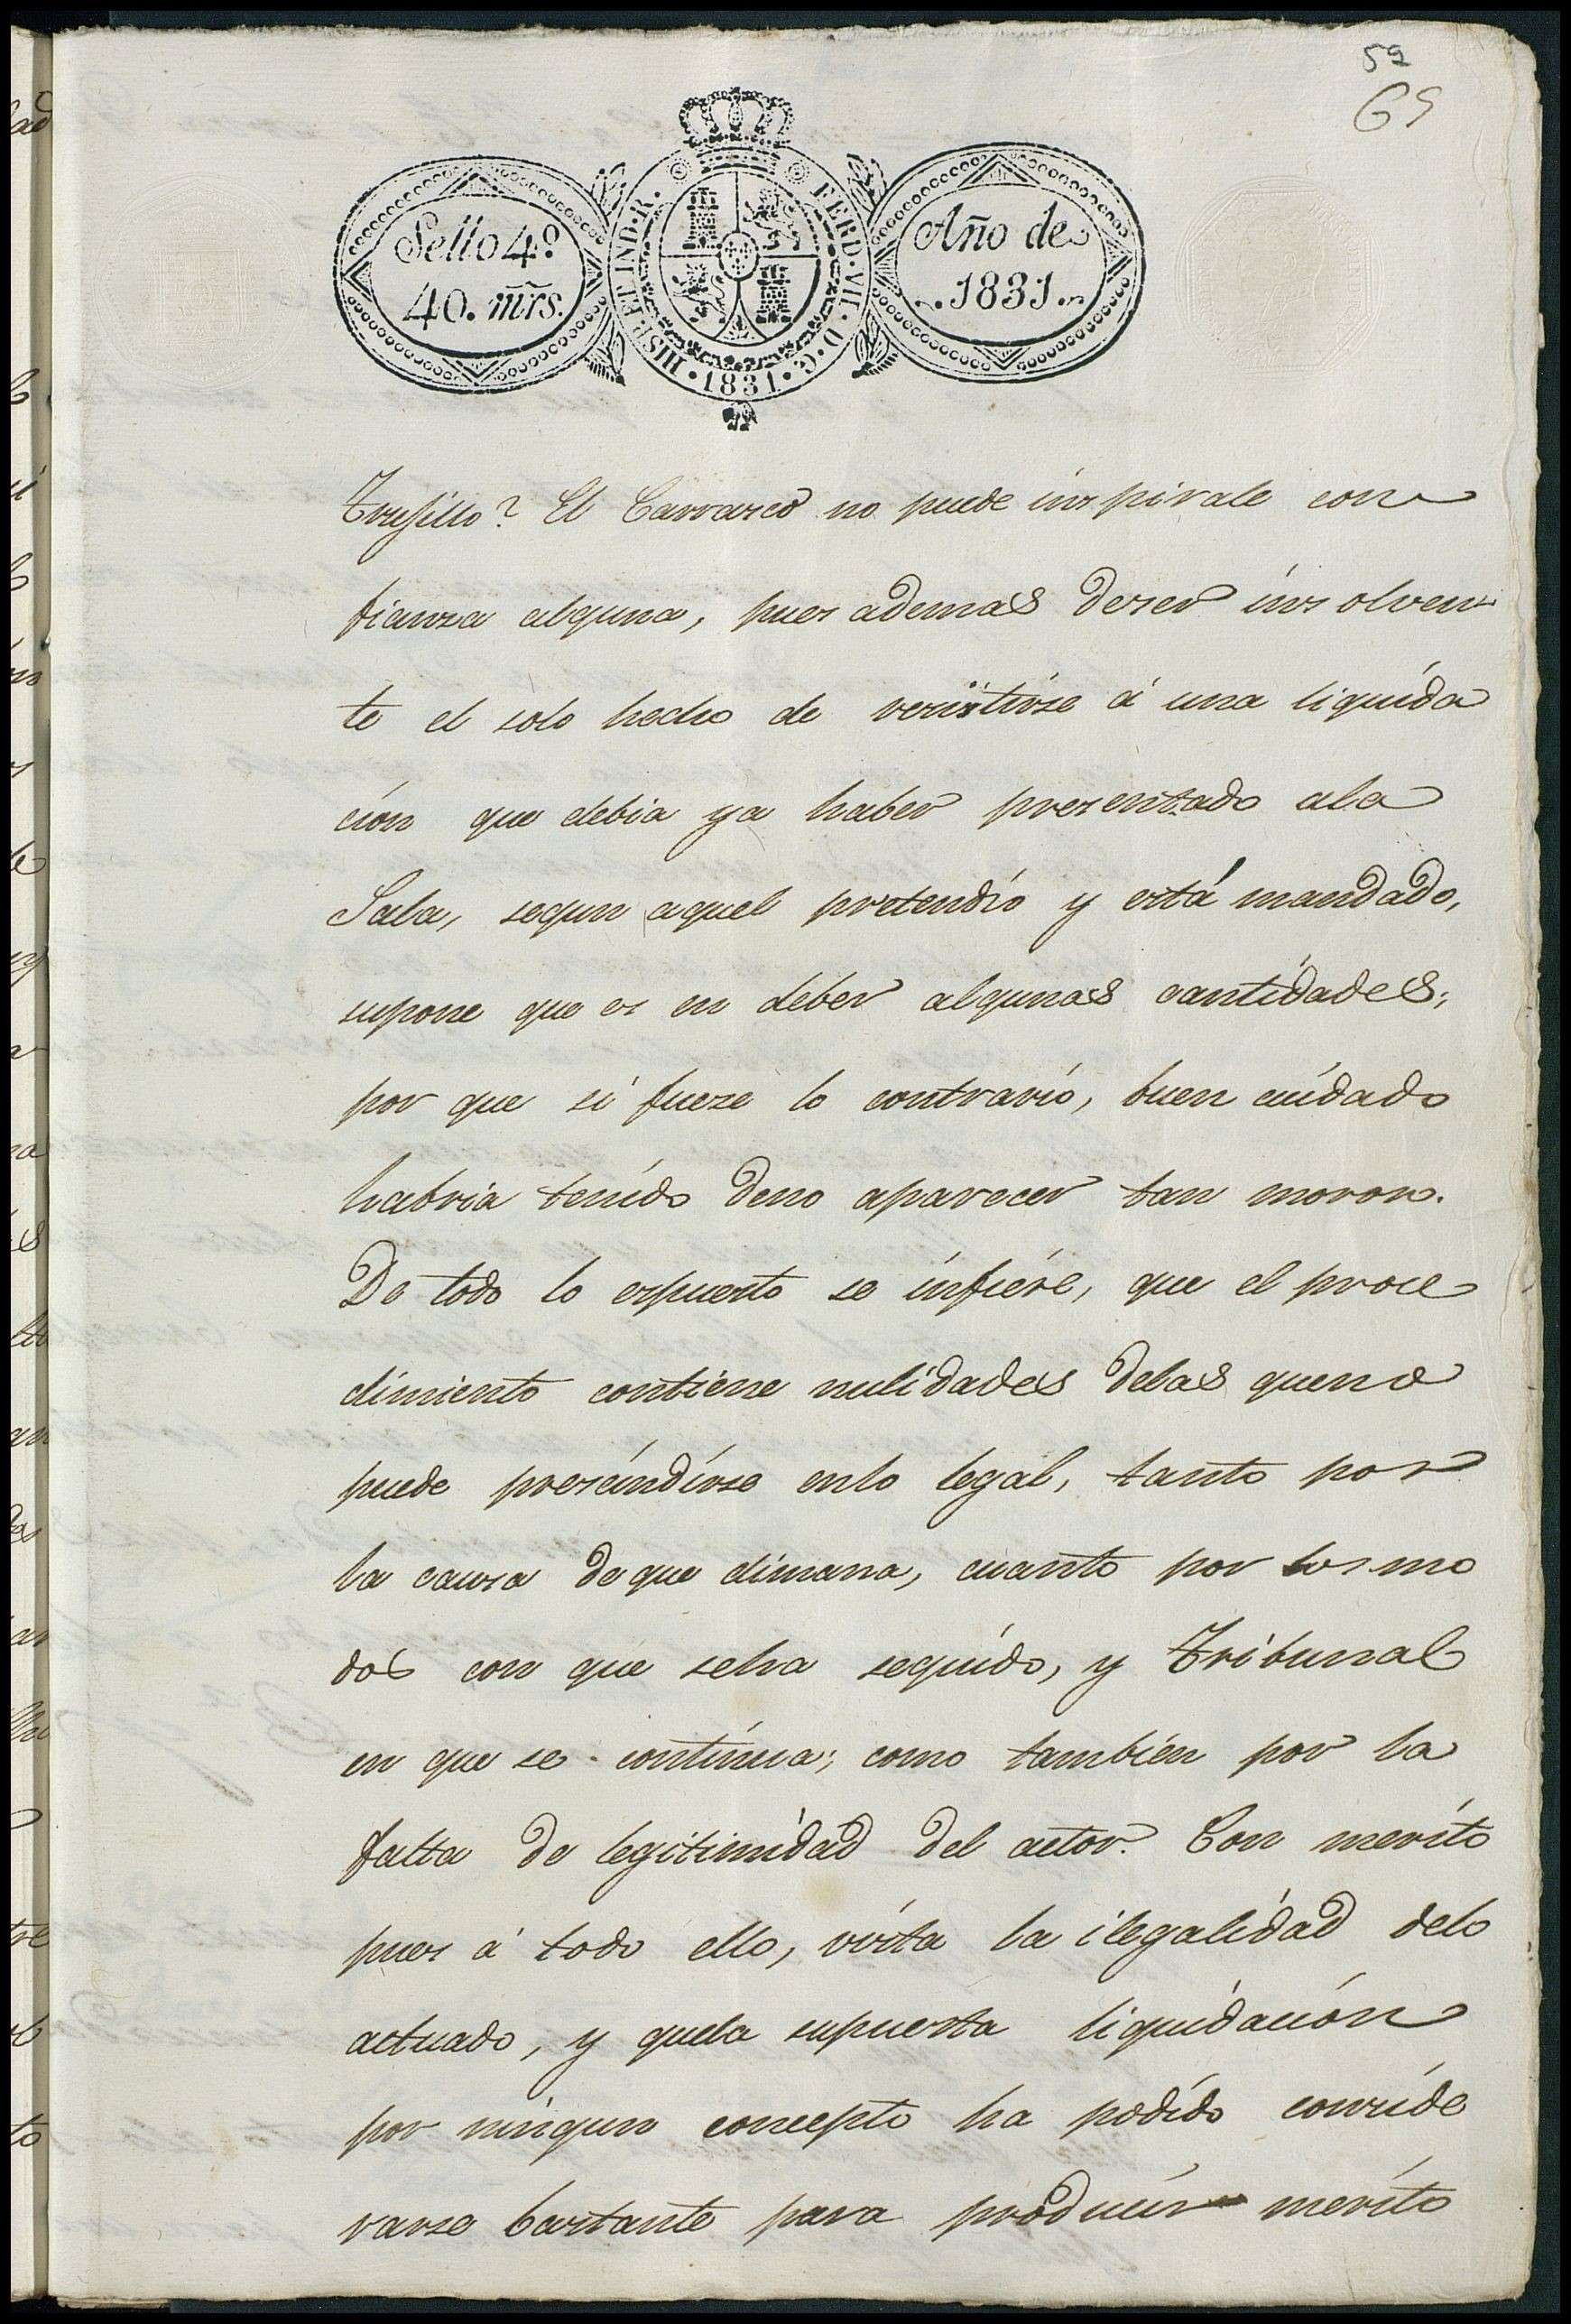 59
69
Sello 4º
40. mrs.
HISP. ET IND. R. FERD. VII. D. G. 1831.
Año de
1831.
Trujillo? El Carrasco no puede inspirale con
fianza alguna, pues ademas deser insolven
te el solo hecho de resistirse á una liquida
cion que debia ya haber presentado ala
Sala, segun aquel pretendio y está mandado,
supone que es en deber algunas cantidades;
por que si fuese lo contrario, buen cuidado
habria tenido deno aparecer tan moroso.
De todo lo espuesto se infiere, que el proce
dimiento contiene nulidades delas queno
puede prescindirse enlo legal, tanto por
la causa de que dimana, cuanto por los mo
dos con que seha seguido, y Tribunal
en que se continua; como tambien por la
falta de legitimidad del actor. Con merito
pues á todo ello, vista la ilegalidad delo
actuado, y quela supuesta liquidación
por ningun concepto ha podido conside
rarse bastante para producir merito